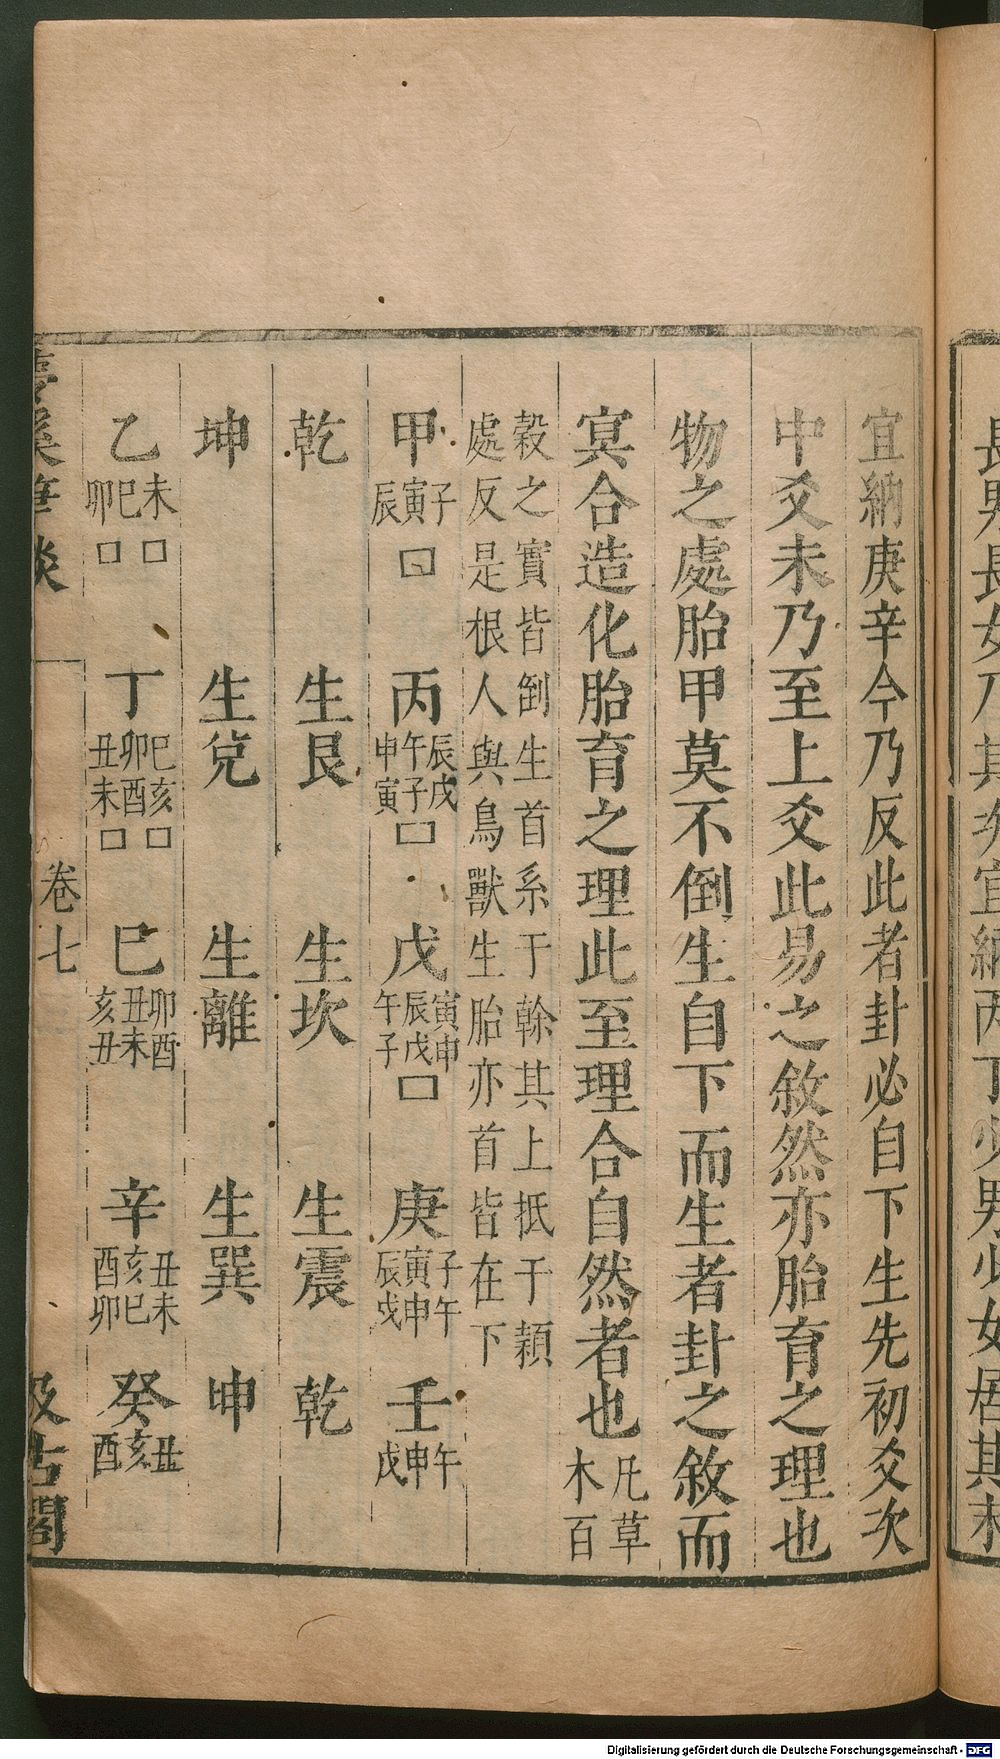 宜納庚辛今乃反此者卦必自下生先初爻次
中爻末乃至上爻此易之敘然亦胎育之理也
物之處胎甲莫不倒生自下而生者卦之敘而
冥合造化胎育之理此至理合自然者也凡草木百
穀之實皆倒生首系于幹其上抵于穎
處反是根人與鳥獸生胎亦首皆在下
甲子寅辰□ 丙辰戌午子申寅□ 戊寅申辰戌午子□ 庚子午寅申辰戌 壬午申戌
乾 生艮 生坎 生震 乾
坤 生兌 生離 生巽 坤
乙未巳卯□□ 丁巳亥卯酉丑未□□ 巳卯酉丑未亥丑 辛丑未亥巳酉卯 癸丑亥酉
夢溪筆談 卷七 汲古閣
長男長女乃其次宜納丙丁少男少女居其末
Digitalisierung gefördert durch die Deutsche Forschungsgemeinschaft - DFG